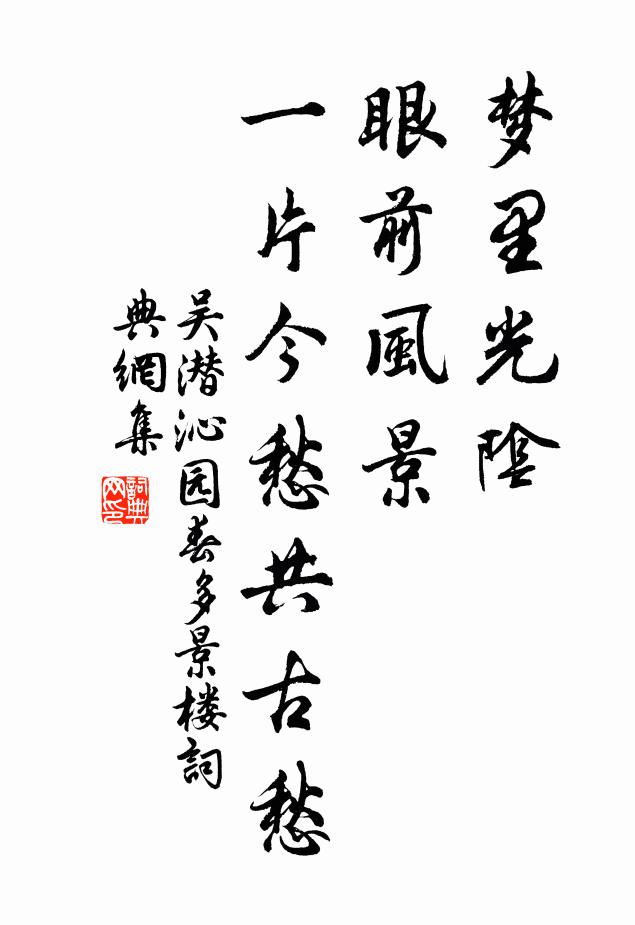 梦里光陰
眼前風景
一片今愁共古愁
吴潜沁园春多景楼詞
典網集
詞典网印